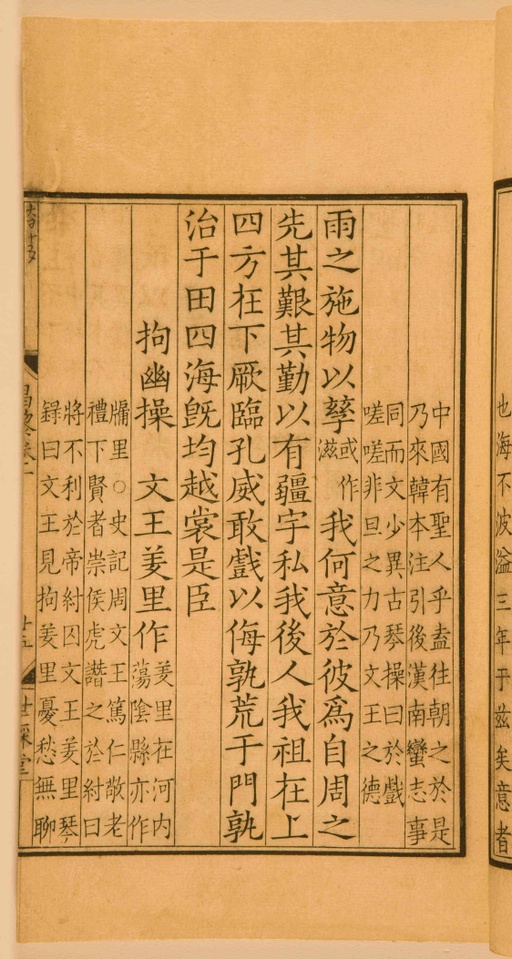 也海不波溢三年于兹矣意者
中國有聖人乎盍往朝之於是
乃來韓本注引後漢南蠻志事
同而文少異古琴操曰於戲
嗟嗟非旦之力乃文王之德
雨之施物以孳或作滋我何意於彼爲自周之
先其艱其勤以有疆宇私我後人我祖在上
四方在下厥臨孔威敢戲以侮孰荒于門孰
治于田四海旣均越裳是臣
拘幽操 文王羑里作羑里在河内蕩陰縣亦作
牖里○史記周文王篤仁敬老
禮下賢者崇侯虎譖之於紂曰
將不利於帝紂囚文王羑里琴
錄曰文王見拘羑里憂愁無聊
昌黎卷一 廿五 世綵堂